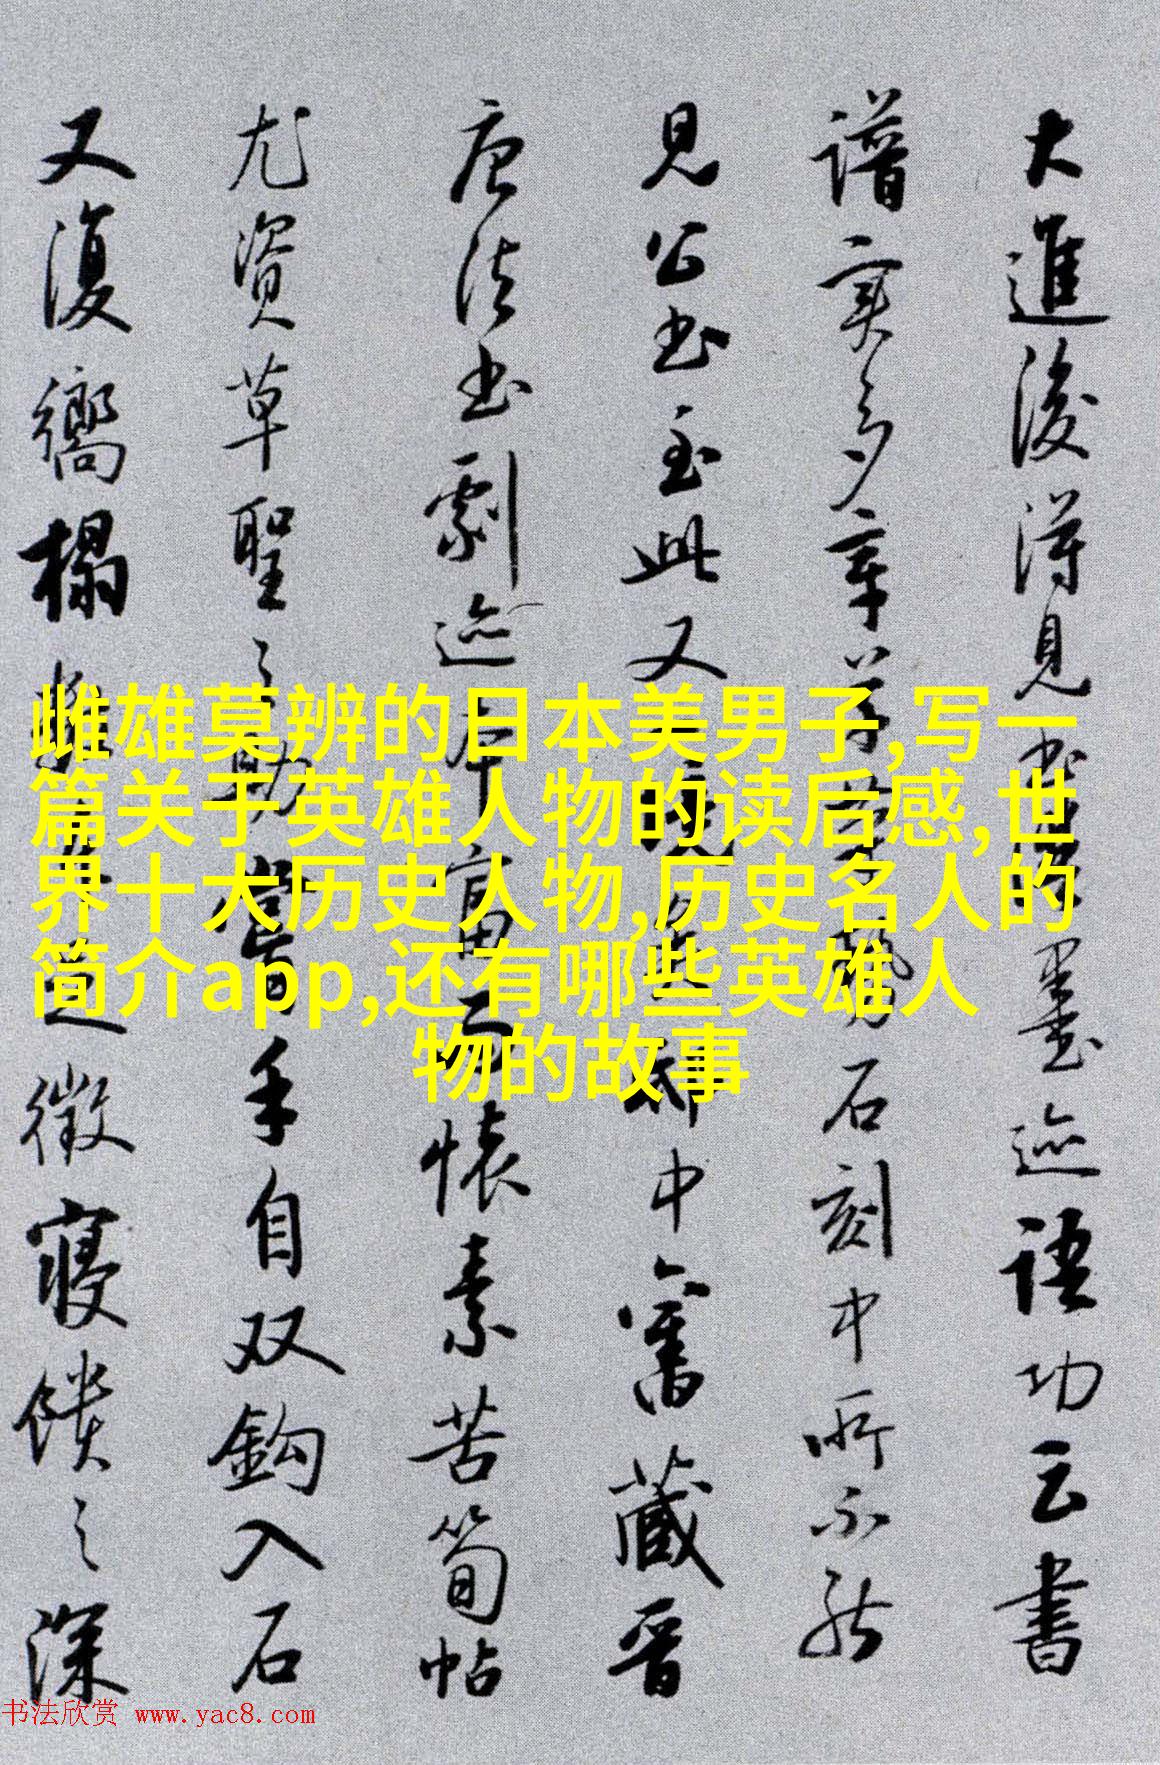 大進後得見書譜墨迹語功云書
譜實多章草
石刻中所不能
見公書至此又
中舊藏晉
唐法書劇迹
富而懷素苦筍帖
尤資草聖之助
手自双鈎入石
又復嚮榻
之徵寝饋之深
雌雄莫辨的日本美男子,写一
篇关于英雄人物的读后感,世
界十大历史人物,历史名人的
简介app,还有哪些英雄人
物的故事
书法欣赏 www.yac8.com